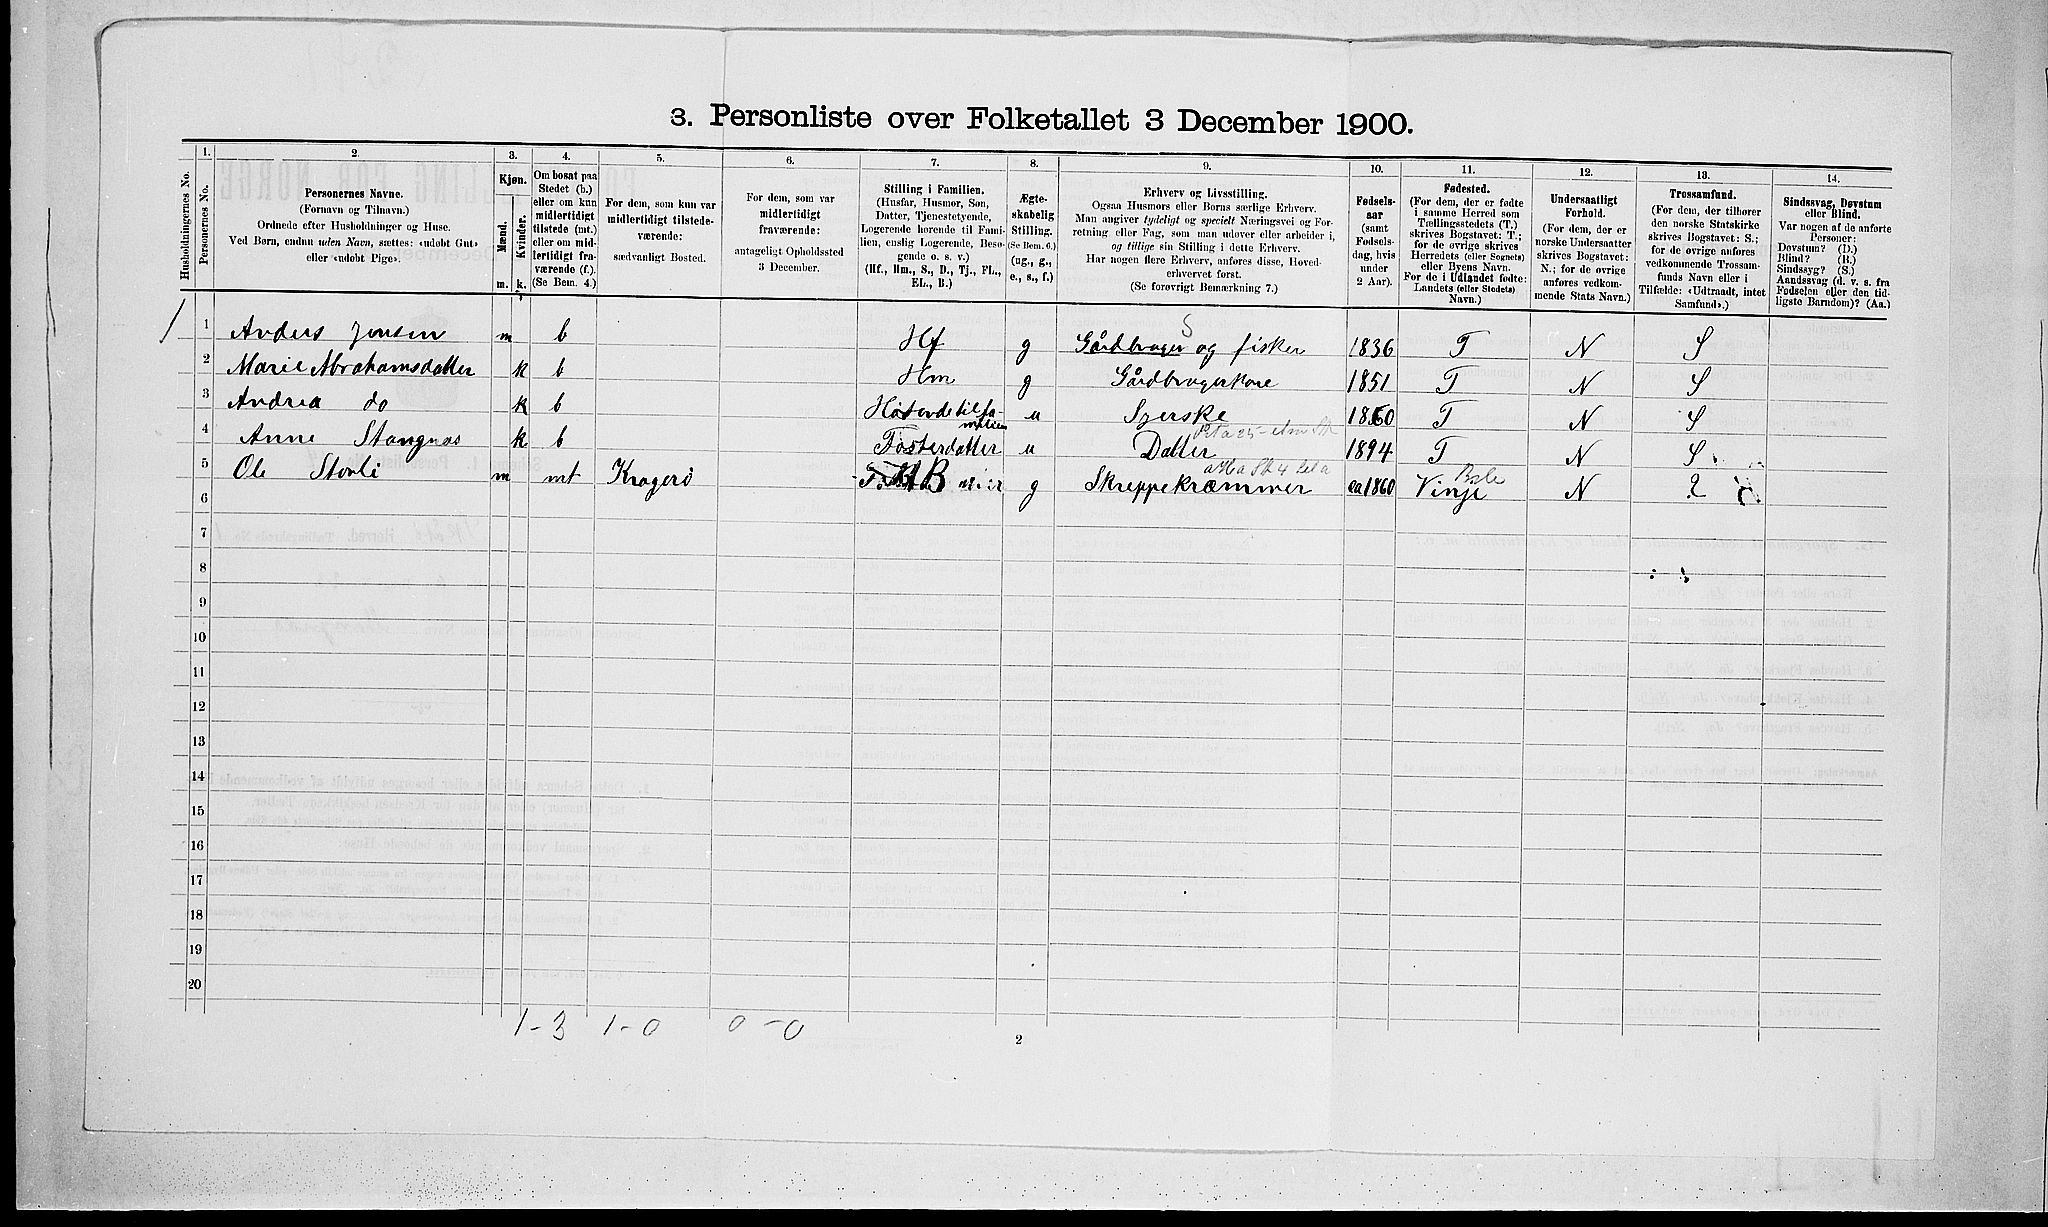 3. Personliste over Folketallet 3 December 1900.
Husholdningernes No.
1.
Personernes No.
2.
Personernes Navne.
(Fornavn og Tilnavn.)
Ordnede efter Husholdninger og Huse.
Ved Børn, endnu uden Navn, sættes: «udøbt Gut»
eller «udøbt Pige».
3.
Kjøn.
Mænd.
Kvinder.
m. k.
4.
Om bosat paa
Stedet (b.)
eller om kun
midlertidigt
tilstede (mt.)
eller om mid-
lertidigt fra-
værende (f.).
(Se Bem. 4.)
5.
For dem, som kun var
midlertidigt tilstede-
værende:
sædvanligt Bosted.
6.
For dem, som var
midlertidigt
fraværende:
antageligt Opholdssted
3 December.
7.
Stilling i Familien.
(Husfar, Husmor, Søn,
Datter, Tjenestetyende,
Logerende hørende til Fami-
lien, enslig Logerende, Besø-
gende o. s. v.)
(Hf., Hm., S., D., Tj., FL.,
EL., B.)
8.
Ægte-
skabelig
Stilling.
(Se Bem. 6.)
(ug., g.,
e., s., f.)
9.
Erhverv og Livsstilling.
Ogsaa Husmors eller Børns særlige Erhverv.
Man angiver tydeligt og specielt Næringsvei og For-
retning eller Fag, som man udøver eller arbeider i,
og tillige sin Stilling i dette Erhverv.
Har nogen flere Erhverv, anføres disse, Hoved-
erhvervet først.
(Se forøvrigt Bemærkning 7.)
10.
Fødsels-
aar
(samt
Fødsels-
dag, hvis
under
2 Aar).
11.
Fødested.
(For dem, der er fødte
i samme Herred som
Tællingsstedets (T.)
skrives Bogstavet: T.;
for de øvrige skrives
Herredets (eller Sognets)
eller Byens Navn.
For de i Udlandet fødte:
Landets (eller Stedets)
Navn.)
12.
Undersaatligt
Forhold.
(For dem, der er
norske Undersaatter
skrives Bogstavet:
N.; for de øvrige
anføres vedkom-
mende Stats Navn.)
13.
Trossamfund.
(For dem, der tilhører
den norske Statskirke
skrives Bogstavet: S.;
for de øvrige anføres
vedkommende Trossam-
funds Navn eller i
Tilfælde: «Udtraadt, intet
Samfund».)
14.
Sindssvag, Døvstum
eller Blind.
Var nogen af de anførte
Personer:
Døvstum? (D.)
Blind? (B.)
Sindssyg? (S.)
Aandssvag (d. v. s. fra
Fødselen eller den tid-
ligste Barndom)? (Aa.)
1 1 Anders Jensen m b Hf g Gårdbruger og fisker 1836 T N S
2 Marie Abrahamsdatter k b Hm g Gårdbrugerkone 1851 T N S
3 Andrea do k b u Syerske 1860 T N S
4 Anne Stangnæs k b Fosterdatter u Datter 1894 T N S
5 Ole mt Kragerø B g Skreppekræmmer ca 1860 Vinje N
6
7
8
9
10
11
12
13
14
15
16
17
18
19
20
1-3 1-0 0-0
2